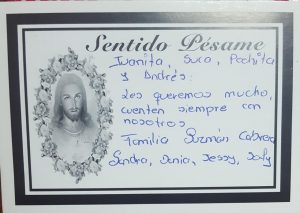 Sentido Pésame
Juanita, Suca, Pochita
y Andrés:
Los queremos mucho,
cuenten siempre con
nosotros
Familia Guzmán Cabrera
Sandra, Sonia, Jessy,